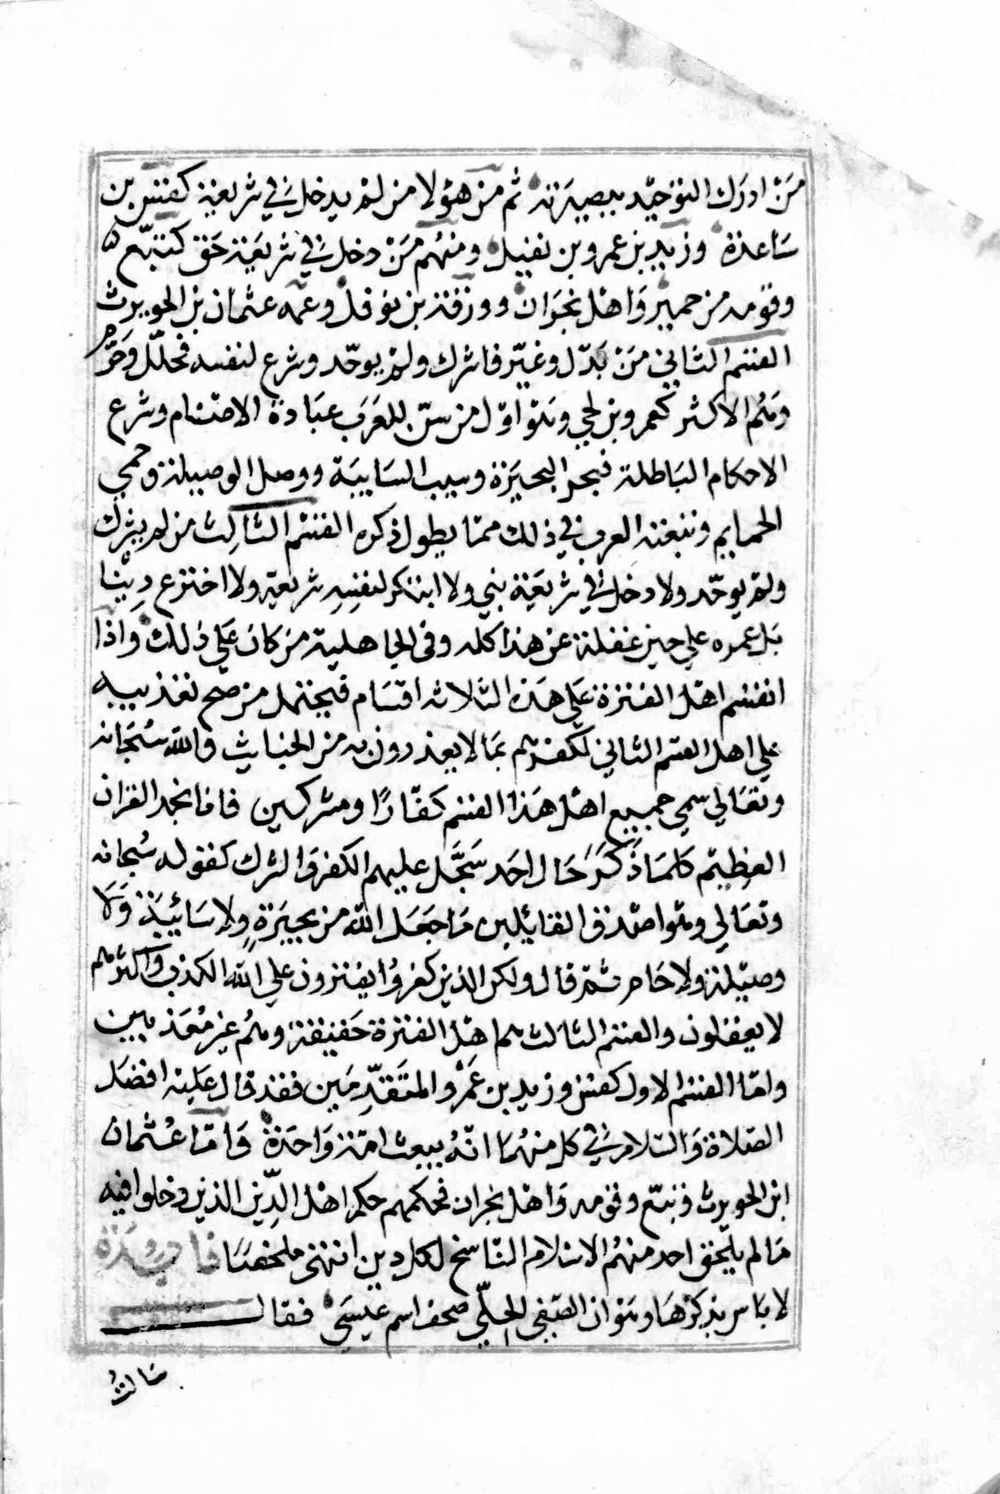 مَنْ ادرَك التوحيد ببصيرته ثم من هؤلا من لم يدخل في شريعة كقس بن
سَاعدة وزيد بن عمرو بن نفيل ومنهم مَنْ دخل في شريعة حَق كتبع
وقومه من حمير وَاهل نجرَان وورقة بن نوفل وعمه عثمان بن الحويرث
القسم الثاني مَنْ بَدّل وغيّر فاشرك ولم يوحّد وشرع لنفسه فحلّل وحَرَّم
وَهُم الاكثر كعمرو بن لحي وهو اوّل من سنّ للعَرَب عبَادة الاصنام وشرع
الاحكام البَاطلة فبحر البحيرَة وسيب السَايبَة ووصل الوصيلة وحمي
الحَمايم وتبعته العرب في ذلك ممّا يطول ذكره القسم الثالث من لم يشرك
ولم يوحّد ولا دخل في شريعَة نبي ولا ابتكر لنفسِهِ شريعة ولا اخترع دينا
بَل عمره علي حين غفلة عن هذا كله وفي الجاهلية من كان عَلي ذلك وَاذا
انقسم اهل الفترة عَلي هَذه الثلاثه اقسَام فيحتمل من صح تعذيبه
علي اهل القسم الثاني لكفرهم بمَا لا يعذرون به من الخبايث والله سُبحانه
وتعَالي سمي جميع اهل هَذا القسم كفّارًا ومشركين فانا نجد القران
العظيم كلمَا ذَكَرَ حَال احَد سَجَّل عليهم الكفر وَالشرك كقوله سُبحانه
وتعَالي وهو اصدق القايلين مَا جَعَل الله من بحيرَةٍ ولا سَائبَة وَلا
وصيلة ولا حَام ثم قال ولكن الذين كفرُوا يفترون علي الله الكذب وَاكثرهم
لا يعقلون والقسم الثالث هم اهل الفترة حَقيقة وهُم غير مُعَذبين
وامّا القسم الاول كقس وزيد بن عَمرو المتَقدّمين فقد قال عليه افضَل
الصّلاة وَالسّلام في كل منهُما انّهُ يبعث امّة وَاحدَة وَامّا عُثمان
ابن الحويرث وتبّع وقومه وَاهل نجران فحكمهم حكم اهل الدّين الذين دخلوا فيه
مَا لم يلحق احد منهُم الاسلام النّاسخ لكل دين انتهي ملخصًا فايدة
لا بَاس بذكرهَا وهو ان الصّفي الحلّي صحف اسم عيسَي فقال